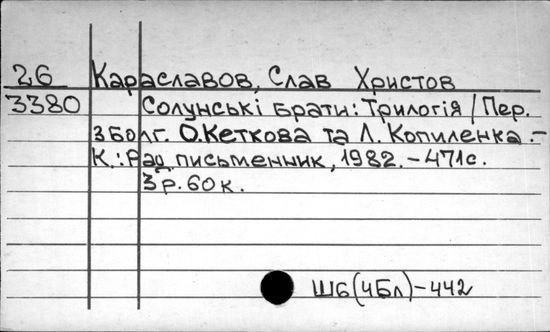 26 Караславов, Слав Христов
3380 Солунські брати: Трилогія / Пер.
з болг. О.Кеткова та Л. Копиленка.-
К.: Рад. письменник, 1982. - 471с.
3р. 60к.
ШБ(4Бл)-442